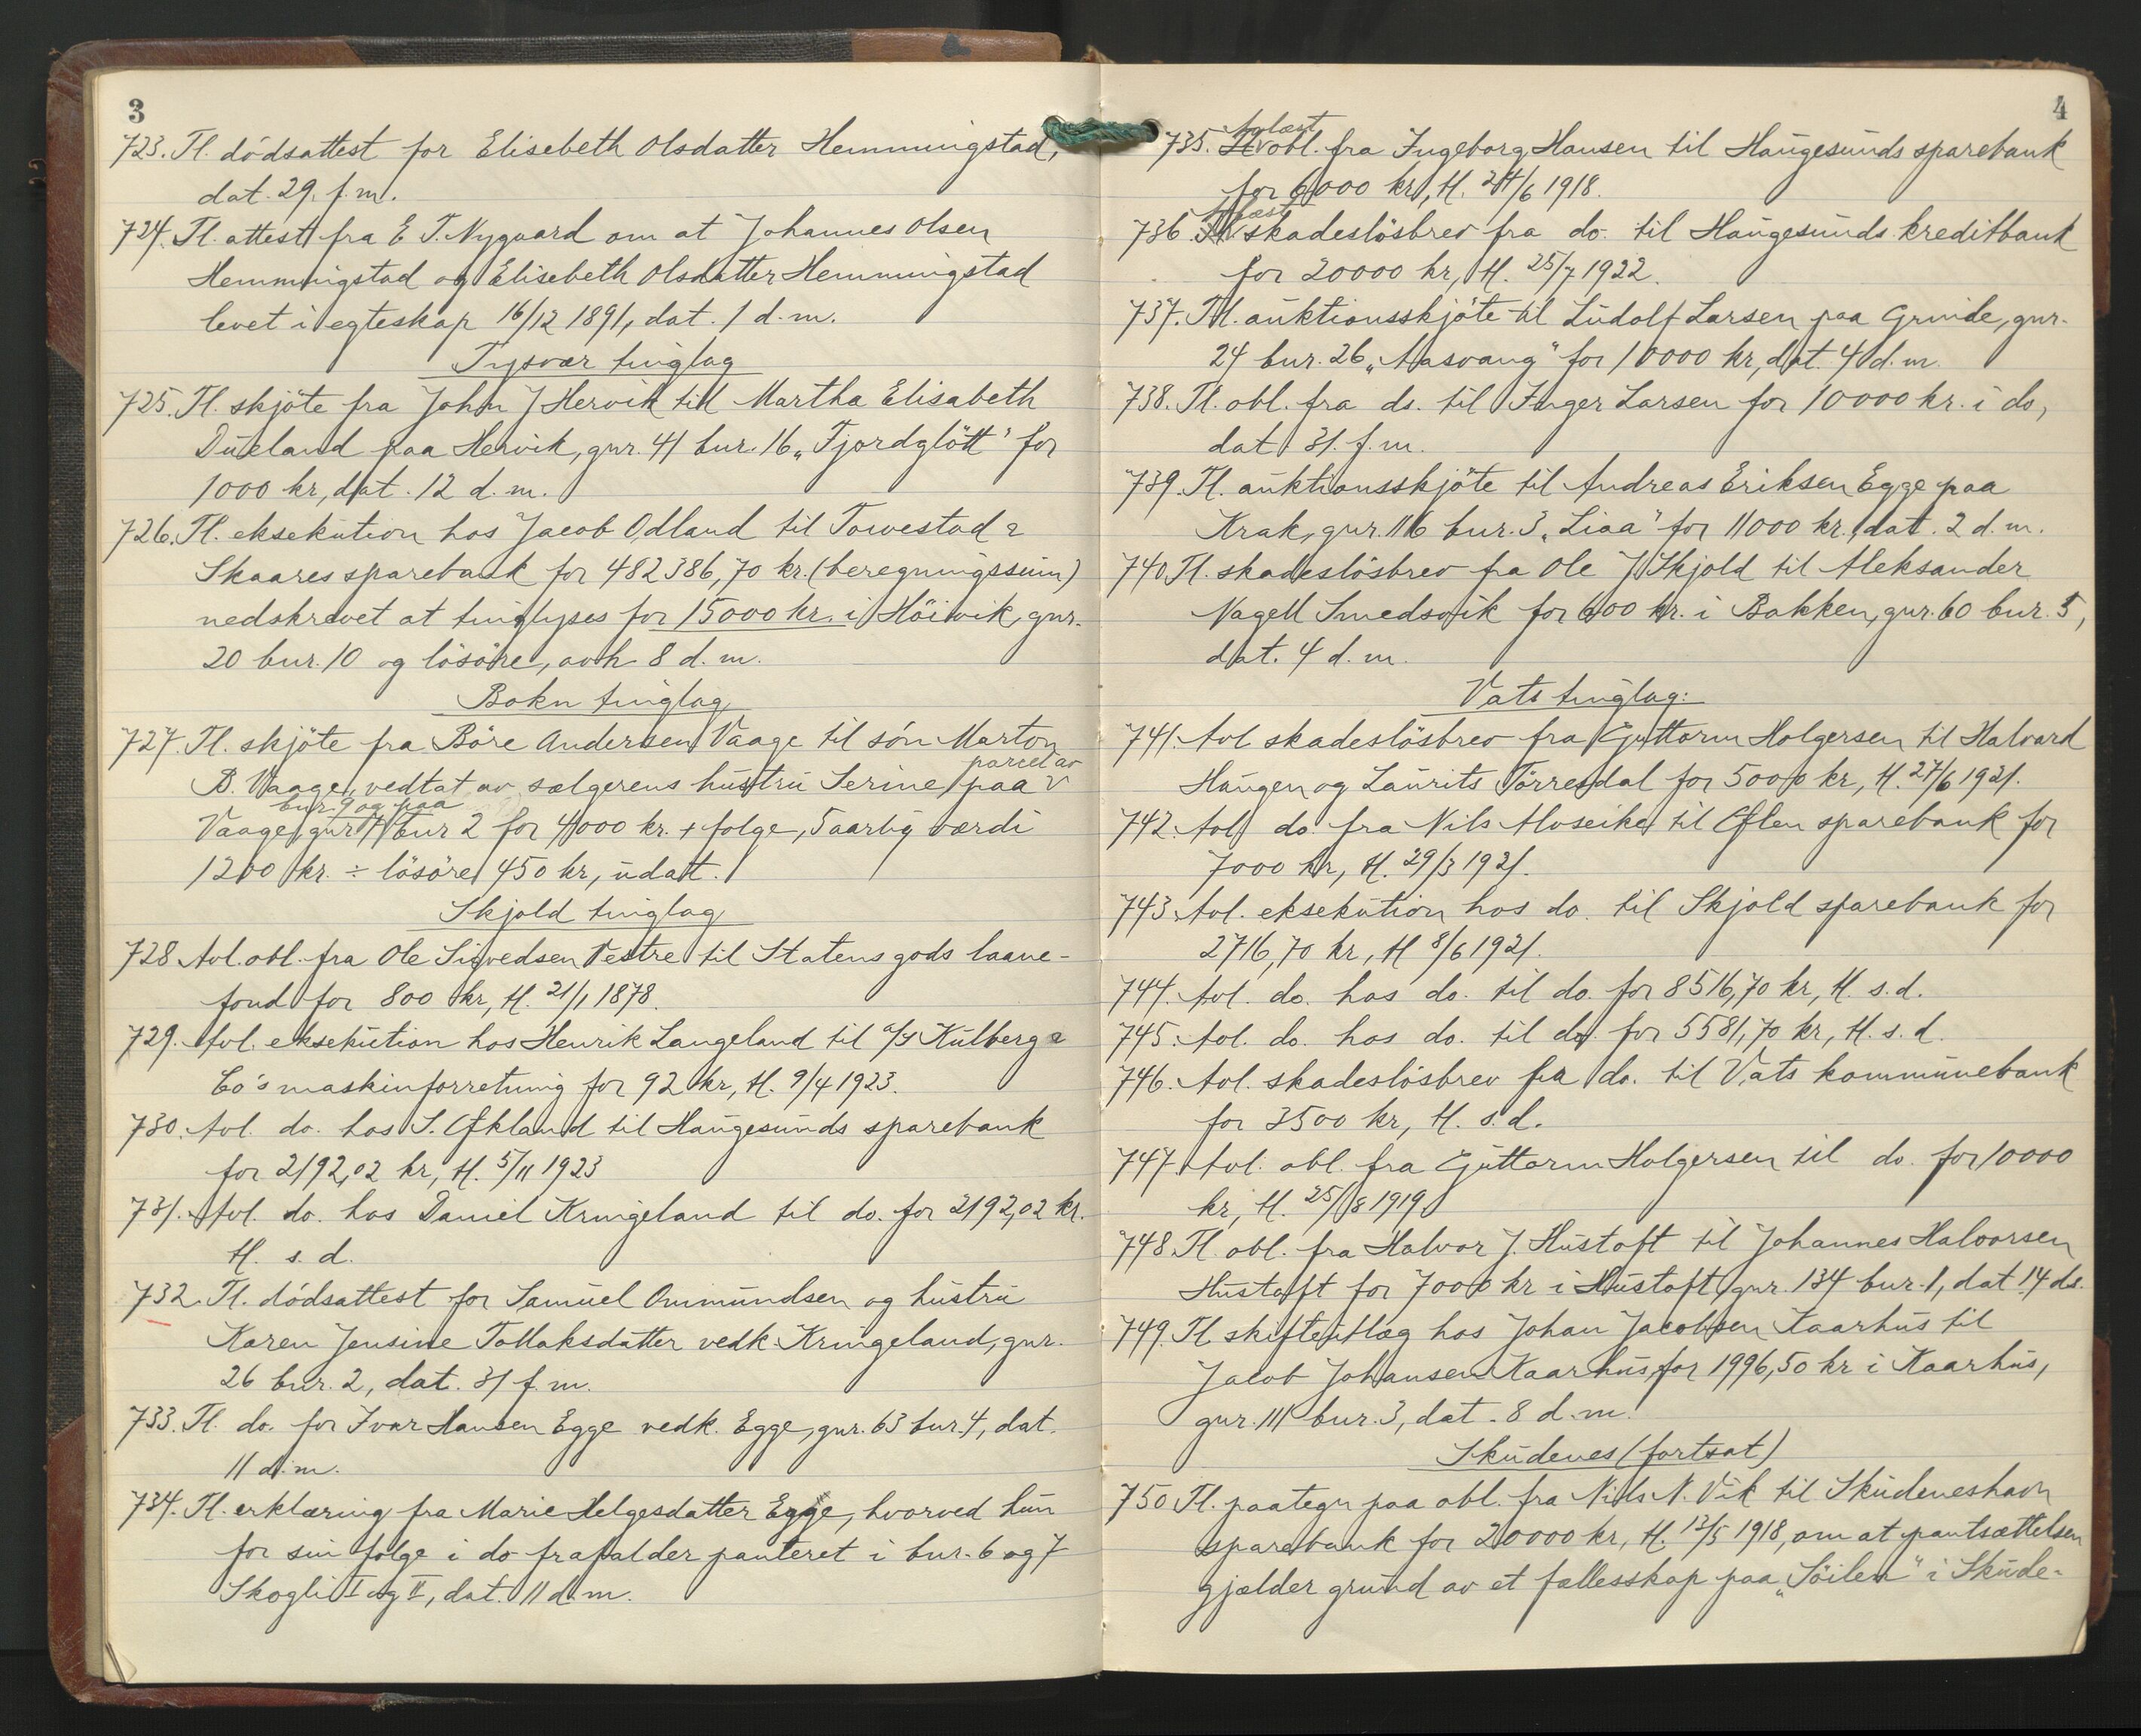 3
723. Tl. dödsattest for Elisebeth Olsdatter Hemmingstad,
dat. 29. f.m.
724. Tl. attest fra E T. Nygaard om at Johannes Olsen
Hemmingstad og Elisebeth Olsdatter Hemmingstad
levet i egteskap 16/12 1891, dat. 1 d.m.
Tysvær tinglag
725. Tl. skjöte fra John J Hervik till Martha Elisabeth
Dueland paa Hervik, gnr. 41 bnr. 16 „Fjordglött" for
1000 kr, dat. 12 d.m.
726. Tl. eksekution hos Jacob Odland til Torvestad &
Skaares sparebank for 482386,70 kr. (beregningssum)
nedskrevet at tinglyses for 15000 kr. i Höievik, gnr.
20 bnr. 10 og lösöre, avh 8 d.m.
Bokn tinglag
727. Tl. skjöte fra Böre Andersen Vaage til sön Marton
B. Vaage, vedtat av sælgerens hustru Serine, paa v
parcel av
bnr. 9 og paa
Vaage, gnr 4 bnr 2 for 4000 kr. + folge, 5 aarlig værdi
1200 kr. ÷ lösöre 450 kr, udatt.
Skjold tinglag
728 Avl. obl. fra Ole Sivedsen Vestre til Statens gods laane-
fond for 800 kr, tl. 21/1 1878.
729. Avl. eksekution hos Henrik Langeland til A/S Kulberg &
Co's maskinforretning for 92 kr, tl. 9/4 1923.
730. Avl. do. hos S. Öfkland til Haugesunds sparebank
for 2192,02 kr, tl. 5/11 1923
731. Avl. do. hos Daniel Kringeland til do. for 2192,02 kr.
tl. s.d.
732 Tl. dödsattest for Samuel Ommundsen og hustru
Karen Jensine Tollaksdatter vedk. Kringeland, gnr.
26 bnr. 2, dat. 31 f.m.
733. Tl. do. for Ivar Hansen Egge vedk. Egge, gnr. 63 bnr. 4, dat.
11 d.m.
734. Tl. erklæring fra Marie Helgesdatter Egge, hvorved hun
for sin folge i do frafalder panteret i bnr. 6 og 7
Skogli I og II, dat. 11 d.m.
4
Avlæst
735. Tl obl. fra Ingeborg Hansen til Haugesunds sparebank
for 6000 kr, tl. 24/6 1918.
Avlæst
736. Tl skadeslösbrev fra do. til Haugesunds kreditbank
for 20000 kr, tl. 25/7 1922.
737. Tl. auktionsskjöte til Ludolf Larsen paa Grinde, gnr.
24 bnr. 26 „Aasvang" for 10000 kr, dat. 4 d.m.
738. Tl. obl. fra ds. til Inger Larsen for 10000 kr. i do,
dat 31. f.m.
739. Tl. auktionsskjöte til Andreas Eriksen Egge paa
Krak, gnr. 116 bnr. 3 „Liaa" for 11000 kr. dat. 2 d.m.
740. Tl. skadeslösbrev fra Ole J Skjold til Aleksander
Nagell Smedsvik for 600 kr. i Bakken, gnr. 60 bnr. 5,
dat. 4 d.m.
Vats tinglag:
741. Avl skadeslösbrev fra Guttorm Holgersen til Halvard
Haugen og Laurits Törresdal for 5000 kr, tl. 27/6 1921.
742. Avl do fra Nils Alvseike til Ölen sparebank for
7000 kr, tl. 29/3 1921.
743. Avl. eksekution hos do. til Skjold sparebank for
2716,70 kr, tl 8/6 1921.
744. Avl. do. hos do. til do. for 8516,70 kr, tl. s.d.
745. Avl. do. hos do. til do. for 5581,70 kr, tl. s.d.
746. Avl. skadeslösbrev fra do. til Vats kommunebank
for 3500 kr, tl. s.d.
747. Avl. obl. fra Guttorm Holgersen til do. for 10000
kr, tl. 25/8 1919
748 Tl. obl. fra Halvor J. Hustoft til Johannes Halvorsen
Hustoft for 7000 kr i Hustoft, gnr. 134 bnr. 1, dat. 14 ds.
749. Tl skifteutlæg hos Johan Jacobsen Kaarhus til
Jacob Johansen Kaarhus, for 1996,50 kr i Kaarhus,
gnr. 111 bnr. 3, dat. 8 d.m.
Skudenes (fortsat)
750 Tl. paategn paa obl. fra Nils N. Vik til Skudeneshavn
sparebank for 20000 kr, tl. 13/5 1918, om at pantsættelsen
gjælder grund av et fællesskap paa „Söilen" i Skude-